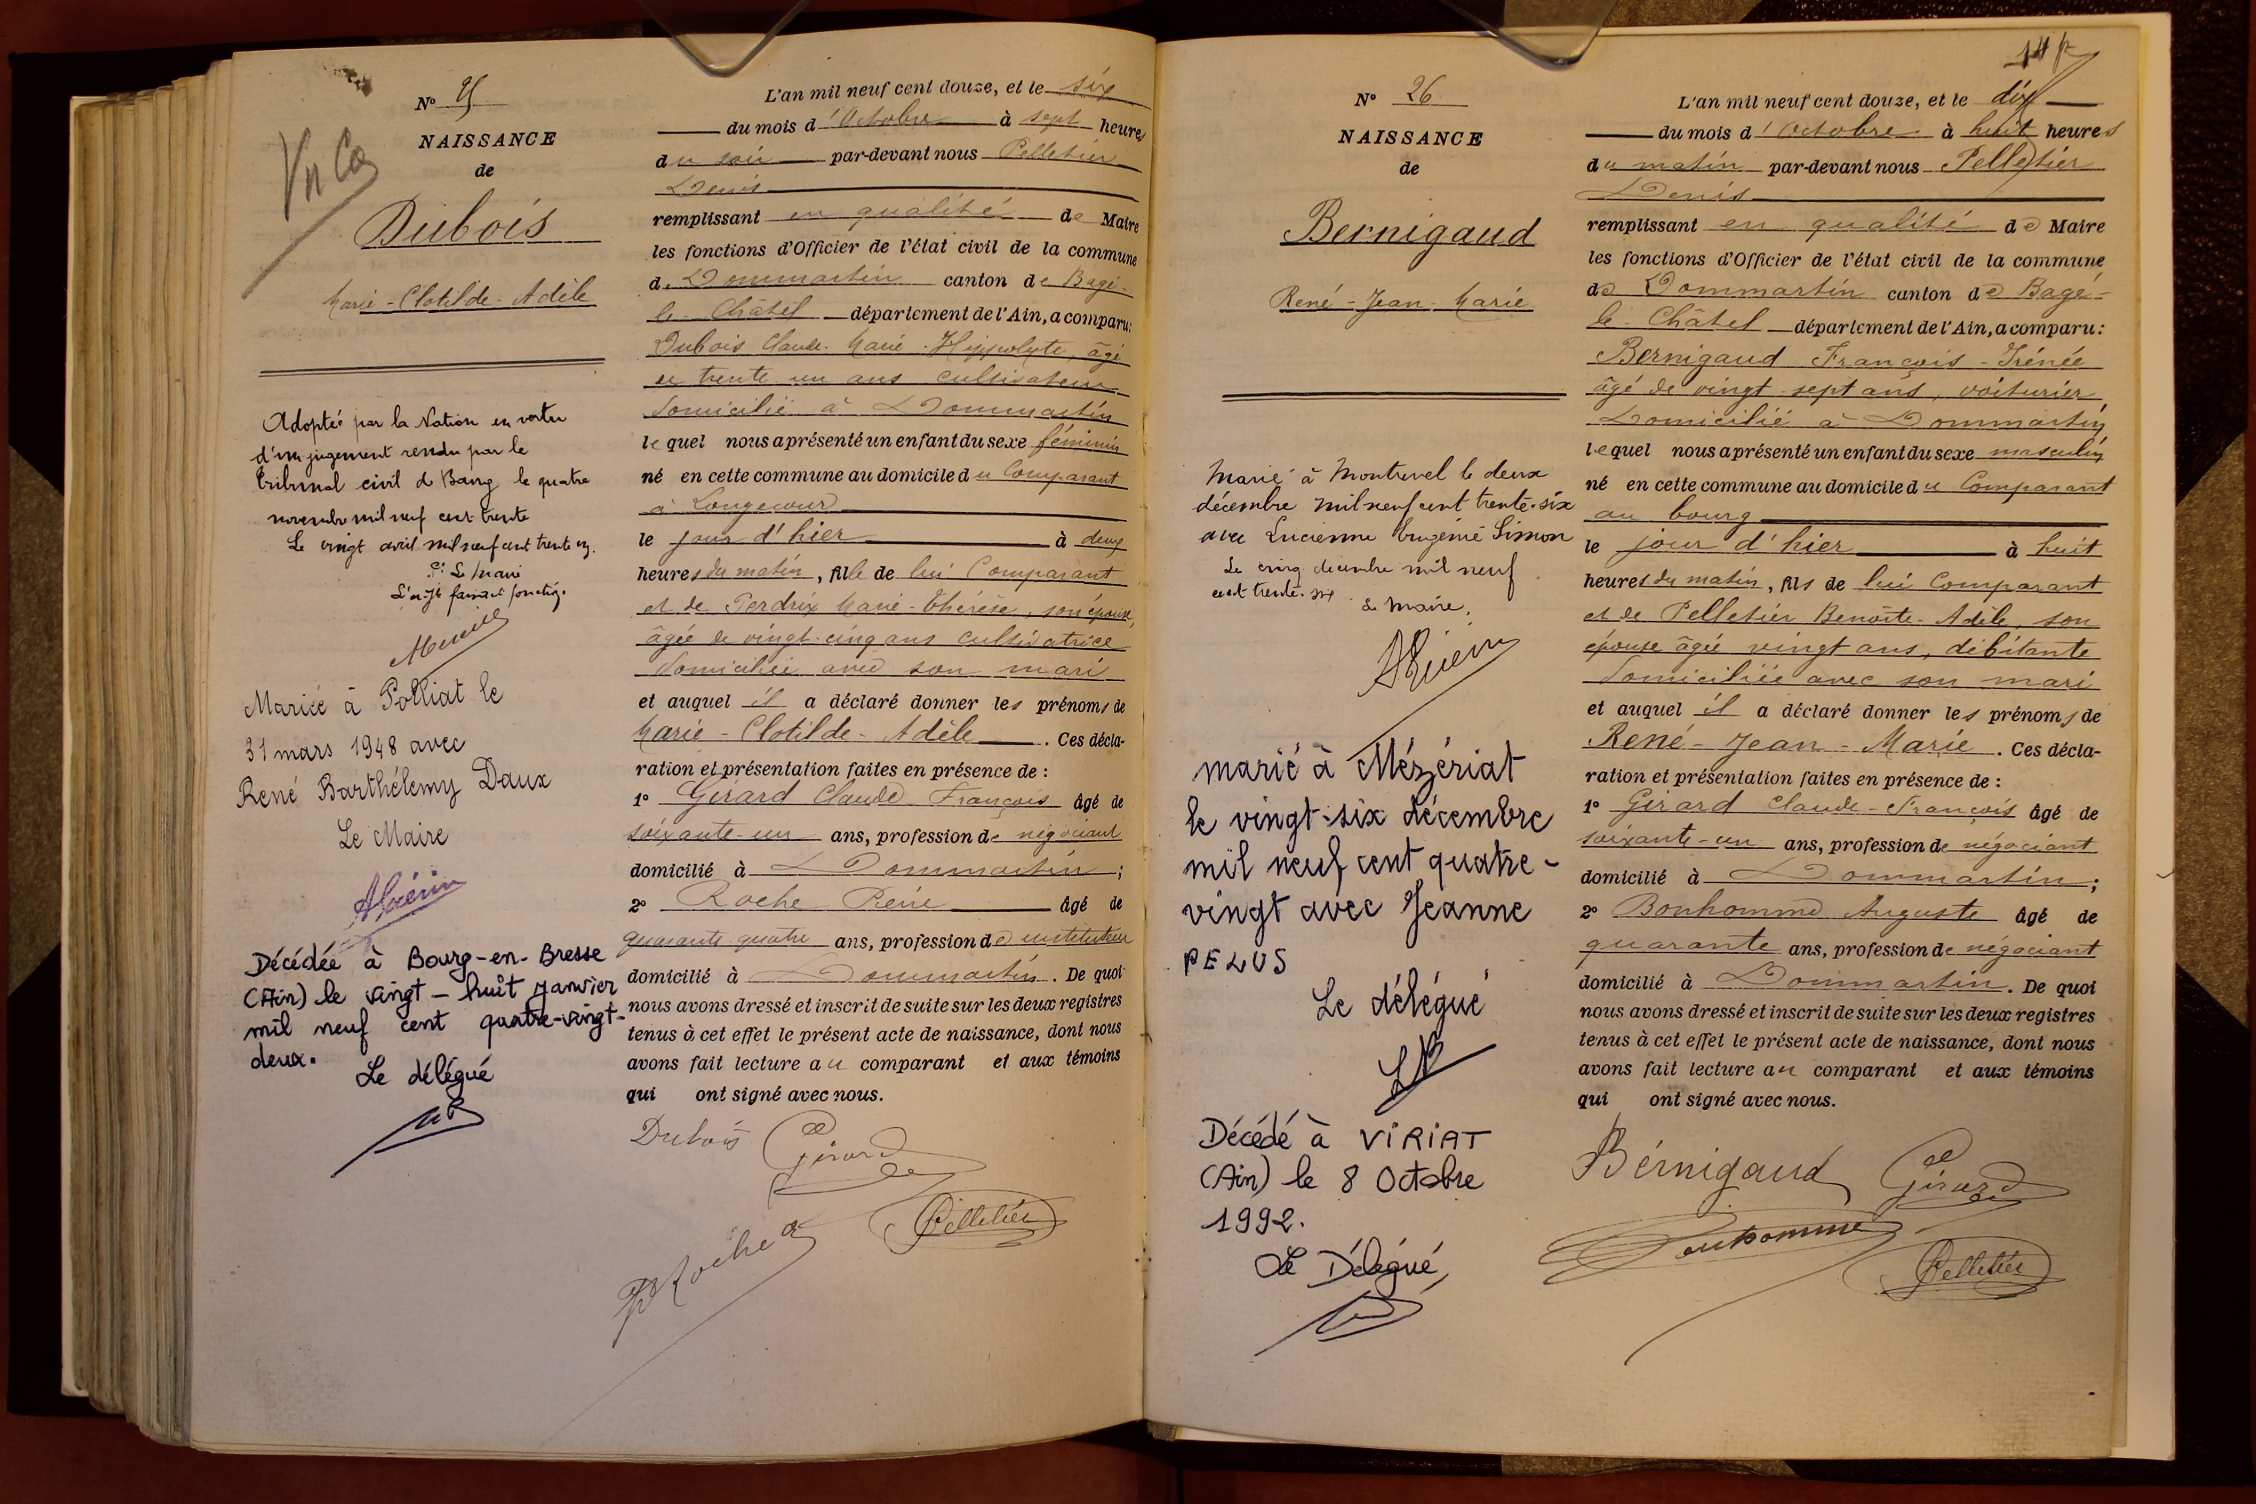 N° 25
NAISSANCE
de
Dubois
Marie-Clotilde-Adèle
Adoptée par la Nation en vertu
d'un jugement rendu par le
Tribunal civil de Bourg le quatre
novembre mil neuf cent trente
Le vingt avril mil neuf cent trente un.
Pr Le Maire
L'adjt faisant fonction.
Mariée à Polliat le
31 mars 1948 avec
René Barthélemy Daux
Le Maire
AGuérin
Décédée à Bourg-en-Bresse
(Ain) le vingt-huit janvier
mil neuf cent quatre-vingt-
deux.
Le délégué
L'an mil neuf cent douze, et le six
du mois d'Octobre à sept heures
du soir par-devant nous Pelletier
Denis
remplissant en qualité de Maire
les fonctions d'Officier de l'état civil de la commune
de Dommartin canton de Bagé-
le-Châtel département de l'Ain, a comparu:
Dubois Claude-Marie-Hippolyte, âgé
de trente un ans cultivateur
domicilié à Dommartin
lequel nous a présenté un enfant du sexe féminin
né en cette commune au domicile du Comparant
à Longecour
le jour d'hier à deux
heures du matin, fille de lui Comparant
et de Perdrix Marie-Thérèse, son épouse,
âgée de vingt-cinq ans cultivatrice
domiciliée avec son mari
et auquel il a déclaré donner les prénoms de
Marie-Clotilde-Adèle. Ces décla-
ration et présentation faites en présence de :
1° Gérard Claude François âgé de
soixante-un ans, profession de négociant
domicilié à Dommartin ;
2° Roche Pierre âgé de
quarante-quatre ans, profession de instituteur
domicilié à Dommartin. De quoi
nous avons dressé et inscrit de suite sur les deux registres
tenus à cet effet le présent acte de naissance, dont nous
avons fait lecture au comparant et aux témoins
qui ont signé avec nous.
Dubois Gérard
Roche Pelletier
N° 26
NAISSANCE
de
Bernigaud
René-Jean-Marie
Marié à Montrevel le deux
décembre mil neuf cent trente-six
avec Lucienne Eugénie Simon
Le cinq décembre mil neuf
cent trente-six
Le Maire,
AGuérin
marié à Mézériat
le vingt-six décembre
mil neuf cent quatre-
vingt avec Jeanne
PELUS
Le délégué
Décédé à VIRIAT
(Ain) le 8 Octobre
1992.
Le Délégué,
L'an mil neuf cent douze, et le dix
du mois d'Octobre à huit heures
du matin par-devant nous Pelletier
Denis
remplissant en qualité de Maire
les fonctions d'Officier de l'état civil de la commune
de Dommartin canton de Bagé-
le-Châtel département de l'Ain, a comparu:
Bernigaud François-Irénée
âgé de vingt-sept ans, voiturier,
Domicilié à Dommartin
lequel nous a présenté un enfant du sexe masculin
né en cette commune au domicile du Comparant
au bourg
le jour d'hier à huit
heures du matin, fils de lui Comparant
et de Pelletier Benoîte-Adèle, son
épouse âgée vingt ans, débitante
domiciliée avec son mari
et auquel il a déclaré donner les prénoms de
René-Jean-Marie. Ces décla-
ration et présentation faites en présence de :
1° Gérard Claude-François âgé de
soixante-un ans, profession de négociant
domicilié à Dommartin ;
2° Bonhomme Auguste âgé de
quarante ans, profession de négociant
domicilié à Dommartin. De quoi
nous avons dressé et inscrit de suite sur les deux registres
tenus à cet effet le présent acte de naissance, dont nous
avons fait lecture au comparant et aux témoins
qui ont signé avec nous.
Bérnigaud Gérard
Bonhomme
Pelletier